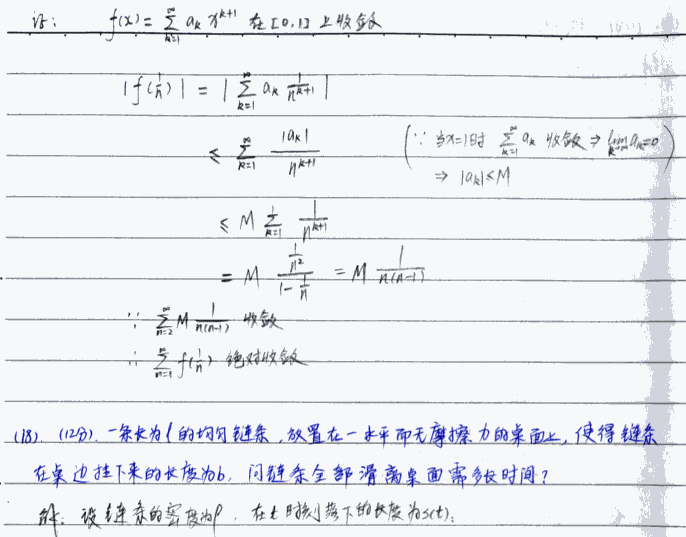 证: f(x) = ∑_{k=1}^{∞} a_k x^{k+1} 在 [0,1] 上收敛
|f(1/n)| = |∑_{k=1}^{∞} a_k 1/n^{k+1}|
≤ ∑_{k=1}^{∞} |a_k|/n^{k+1} (∵ 当x=1时 ∑_{k=1}^{∞} a_k 收敛 ⇒ lim_{k→∞} a_k=0
⇒ |a_k|≤M)
≤ M ∑_{k=1} 1/n^{k+1}
= M (1/n²)/(1-1/n) = M 1/(n(n-1))
∵ ∑_{n=2}^{∞} M 1/(n(n-1)) 收敛
∴ ∑_{n=1}^{∞} f(1/n) 绝对收敛
(18). (12分). 一条长为l的均匀链条, 放置在一水平而无摩擦力的桌面上, 使得链条
在桌边挂下来的长度为b, 问链条全部滑离桌面需多长时间?
解: 设链条的密度为ρ, 在t时刻落下的长度为s(t),